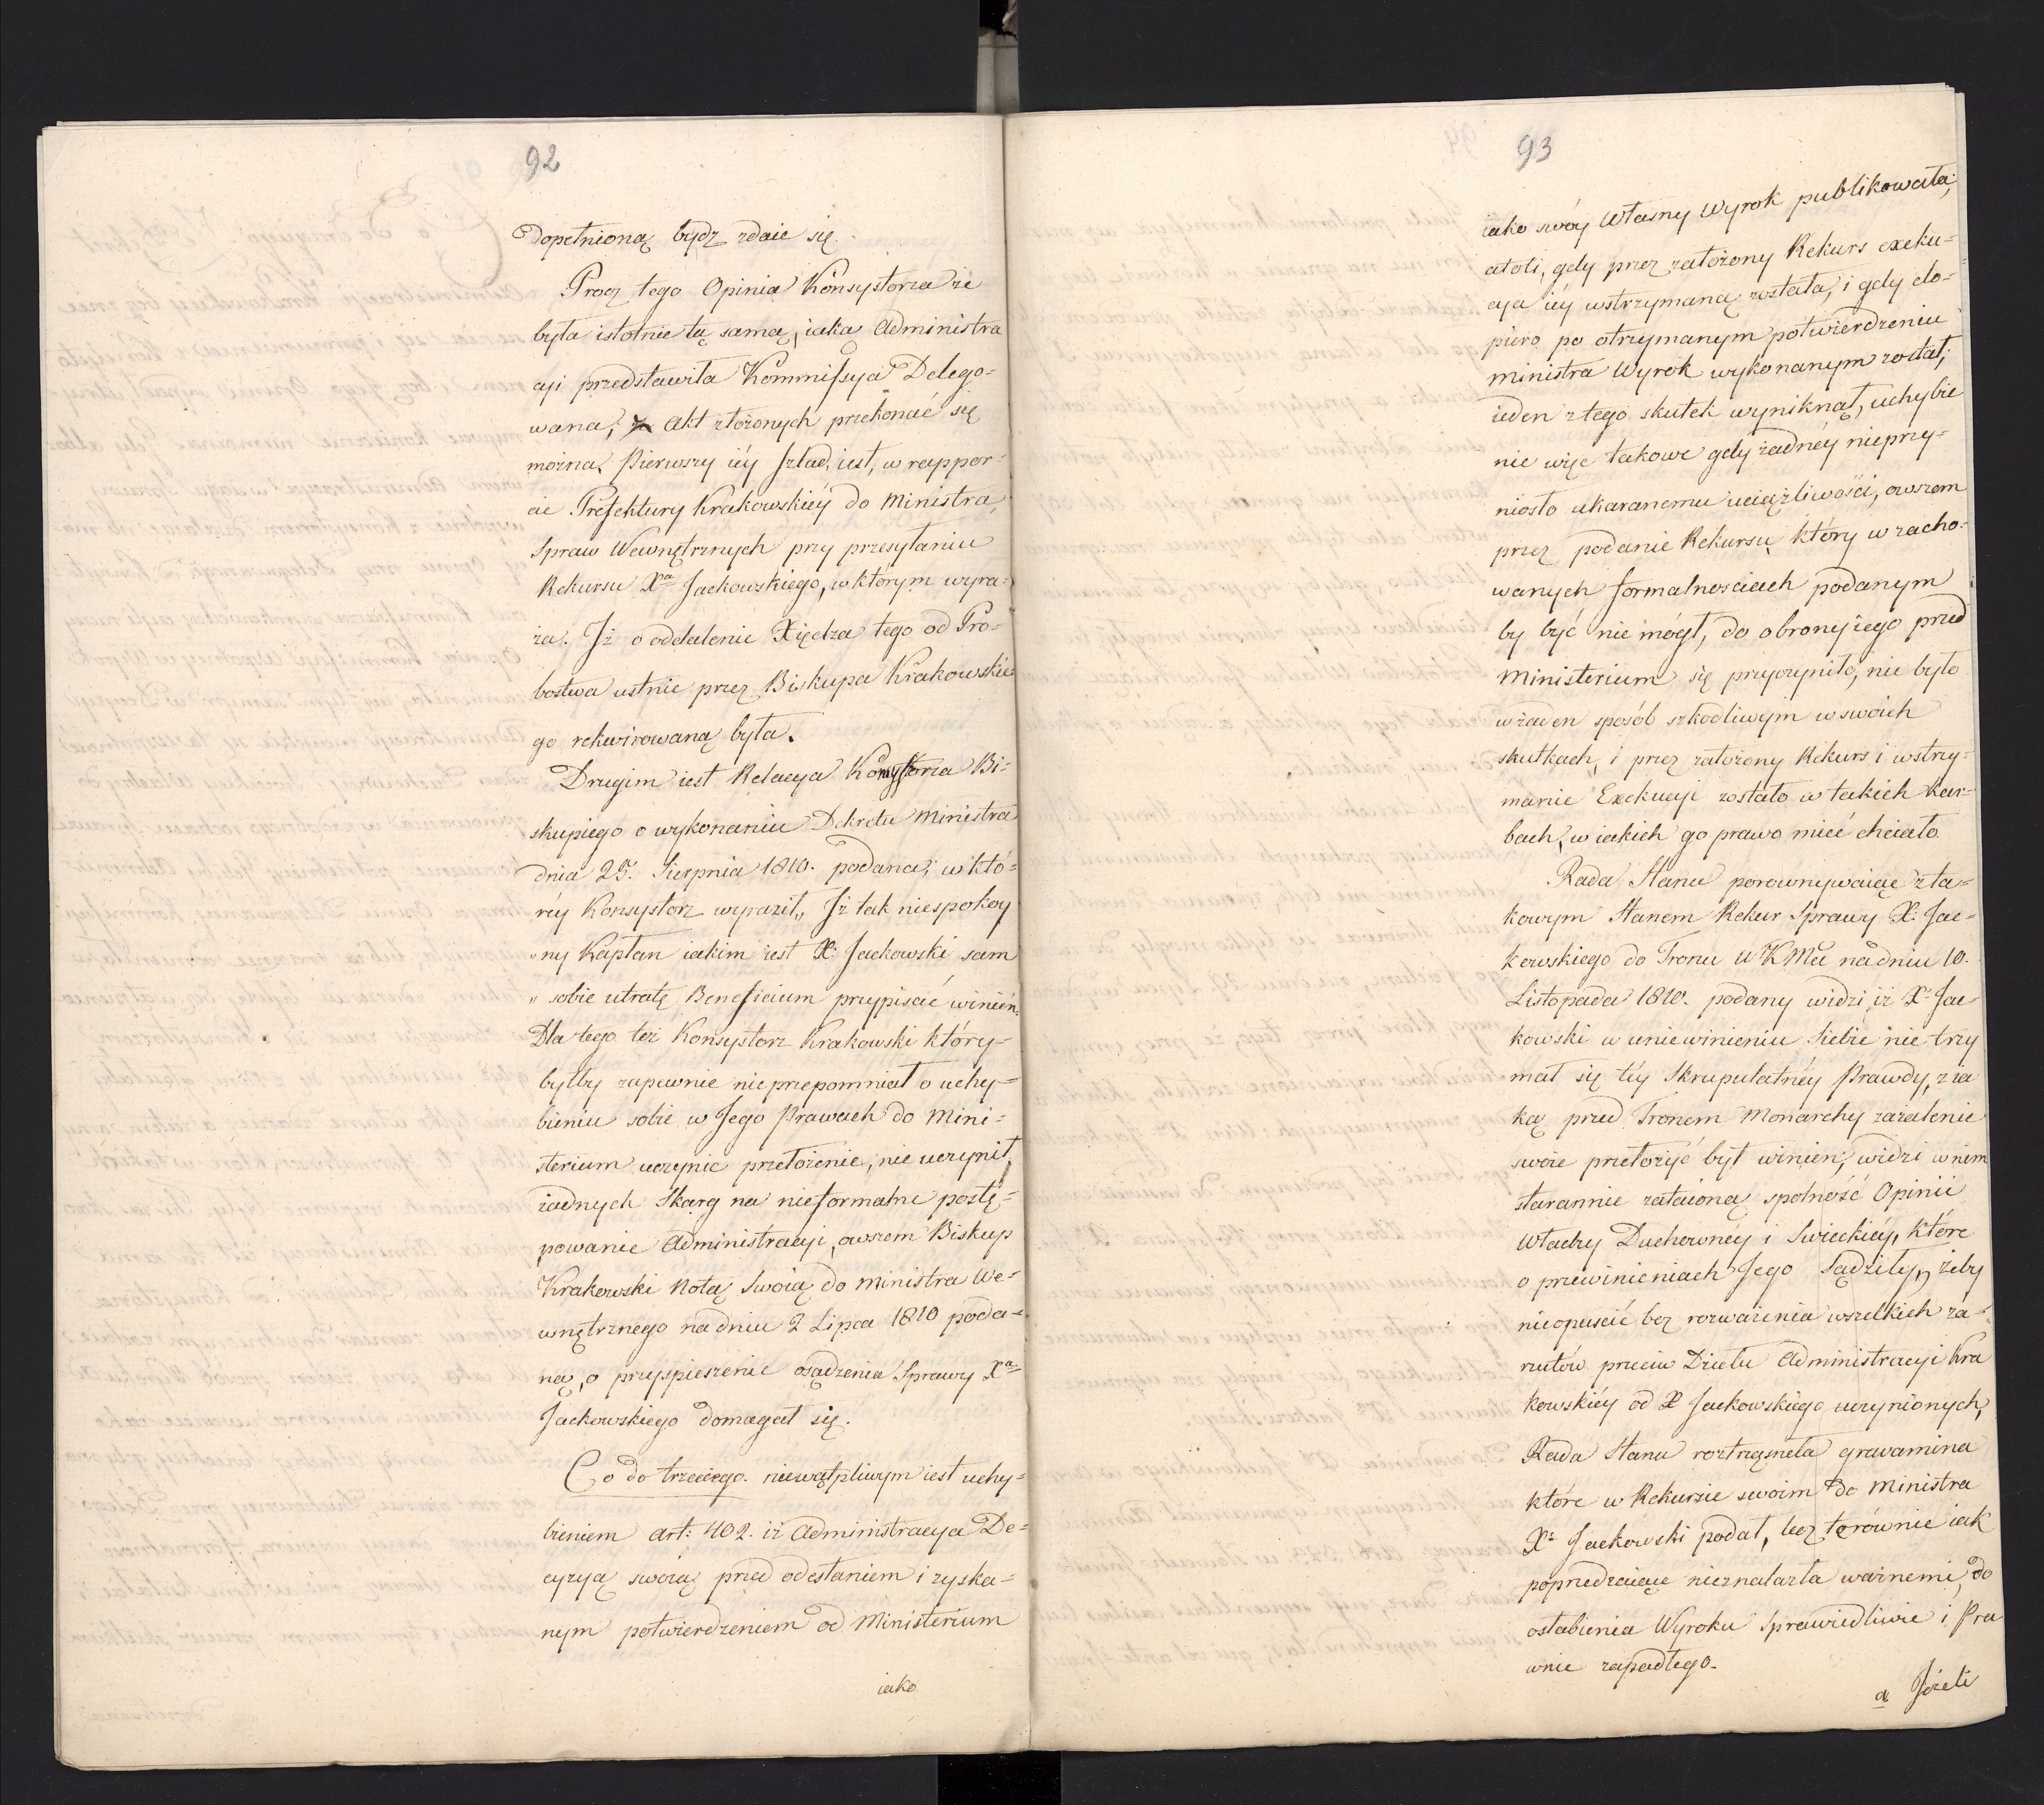 92
dopełnioną bydz zdaie się.
Procz tego Opinia Konsystorza że
była istotnie tą samą, iaką Administra
cyi przedstawiła Kommissya Delego=
wana, z Akt złożonych przekonać się
można. Pierwszy iéy szlad, iest, w rappor=
cie Prefektury Krakowskiéy do Ministra
Spraw Wewnętrznych przy przesyłaniu
Rekursu Xa Jackowskiego, w którym wyra=
ża. Iż o oddalenie Xiędza tego od Pro=
bostwa ustnie przez Biskupa Krakowskie
go rekwirowaną była.
Drugim iest Relacya Konsystorza Bi=
skupiego o wykonaniu Dekretu Ministra
dnia 25. Sierpnia 1810. podana, w któ=
réy Konsystorz wyraził „ Iż tak niespokoy
„ ny Kapłan iakim iest X. Jackowski sam
„ sobie utratę Beneficium przypisać winién.
Dla tego też Konsystorz Krakowski który=
byłby zapewnie nieprzepomniał o uchy=
bieniu sobie w Jego Prawach do Mini=
sterium uczynic przełożenie, nie uczynił
żadnych Skarg na nieformalne postę=
powanie Administracyi, owszem Biskup
Krakowski Notą Swoią do Ministra We=
wnętrznego na dniu 2 Lipca 1810 poda=
ną, o przyspieszenie osądzenia Sprawy Xa
Jackowskiego domagał się.
Co do trzeciego. niewątpliwym iest uchy=
bieniem art: 402. iż Administracya De=
cyzyą swoią przed odesłaniem i zyska=
nym potwierdzeniem od Ministerium
iako
93
iako swóy Własny Wyrok publikowała,
atoli, gdy przez założony Rekurs exeku=
cya iéy wstrzymaną została, i gdy do=
piero po otrzymanym potwierdzeniu
Ministra Wyrok wykonanym został,
ieden z tego skutek wyniknął, uchybie
nie więc takowe gdy żadnéy nieprzy=
niosło ukaranemu uciążliwości, owszem
przez podanie Rekursu który w zacho=
wanych formalnosciach podanym
by być nie mógł, do obrony iego przed
Ministerium się przyczyniło, nie było
w żaden sposób szkodliwym w swoich
skutkach, i przez założony Rekurs i wstrzy=
manie Exekucyi zostało w takich kar=
bach, w iakich go prawo mieć chciało
Rada Stanu porownywaiąc z ta=
kowym Stanem Rekur Sprawy X. Jac=
kowskiego do Tronu WKMci na dniu 10.
Listopada 1810. podany widzi, iż Xz Jac=
kowski w uniewinieniu Siebie nie trzy
mał się téy Skrupulatnéy Prawdy, z ia
ką przed Tronem Monarchy zażalenie
swoie przełożyć był winien, widzi w nim
starannie zataioną spolność Opinii
Władzy Duchownéy i Swieckiéy, które
o przewinieniach Jego Sądziły, żeby
nieopuscić bez rozważenia wszelkich za=
rzutów przeciw Dziełu Administracyi Kra
kowskiéy od X Jackowskiego uczynionych,
Rada Stanu roztrząsnęła grawamina
które w Rekursie swoim do Ministra
Xz Jackowski podał, lecz te równie iak
poprzedzaiące nieznalazła ważnemi, do
osłabienia Wyroku Sprawiedliwie i Pra
wnie zapadłego.
a Jeżeli